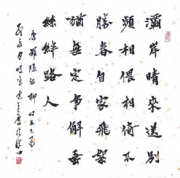 灞岸晴來送別
頻相偎相倚不
勝春自家飛絮
猶無定爭解垂
絲絆路人
唐羅隱詩柳